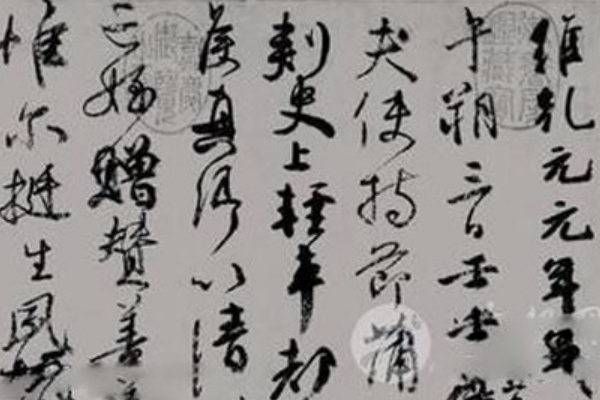 維乾元元年歲
午朔三日壬申
夫使持節蒲
刺史上輕車都
侯真卿以清
亡姪贈贊善
惟爾挺生夙標